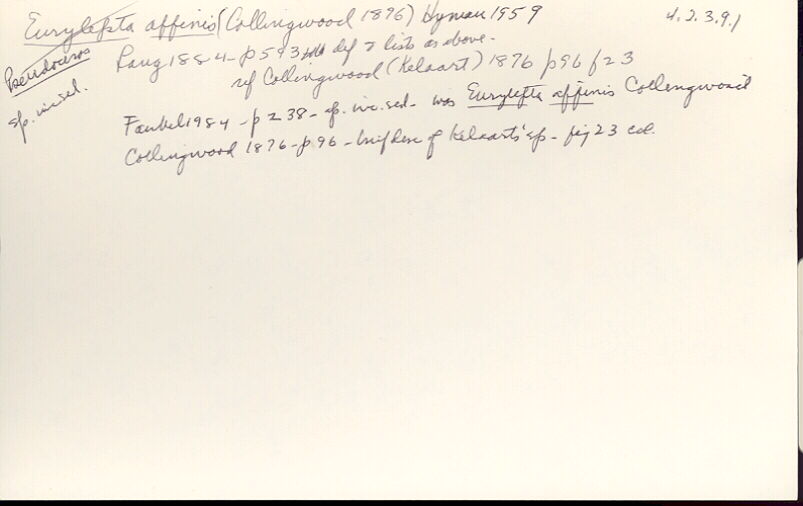 Eurylepta affinis (Collingwood 1876) Hyman 1959 4.2.3.9.1
Pseudoceros
sp. inc. sed.
Lang 1884 - p 593 def & lists as above.
ref Collingwood (Kelaart) 1876 p96 f23
Faubel 1984 - p 238 - sp. inc. sed. - was Eurylepta affinis Collingwood
Collingwood 1876 - p. 96 - brief desc of Kelaart's sp - fig 23 col.